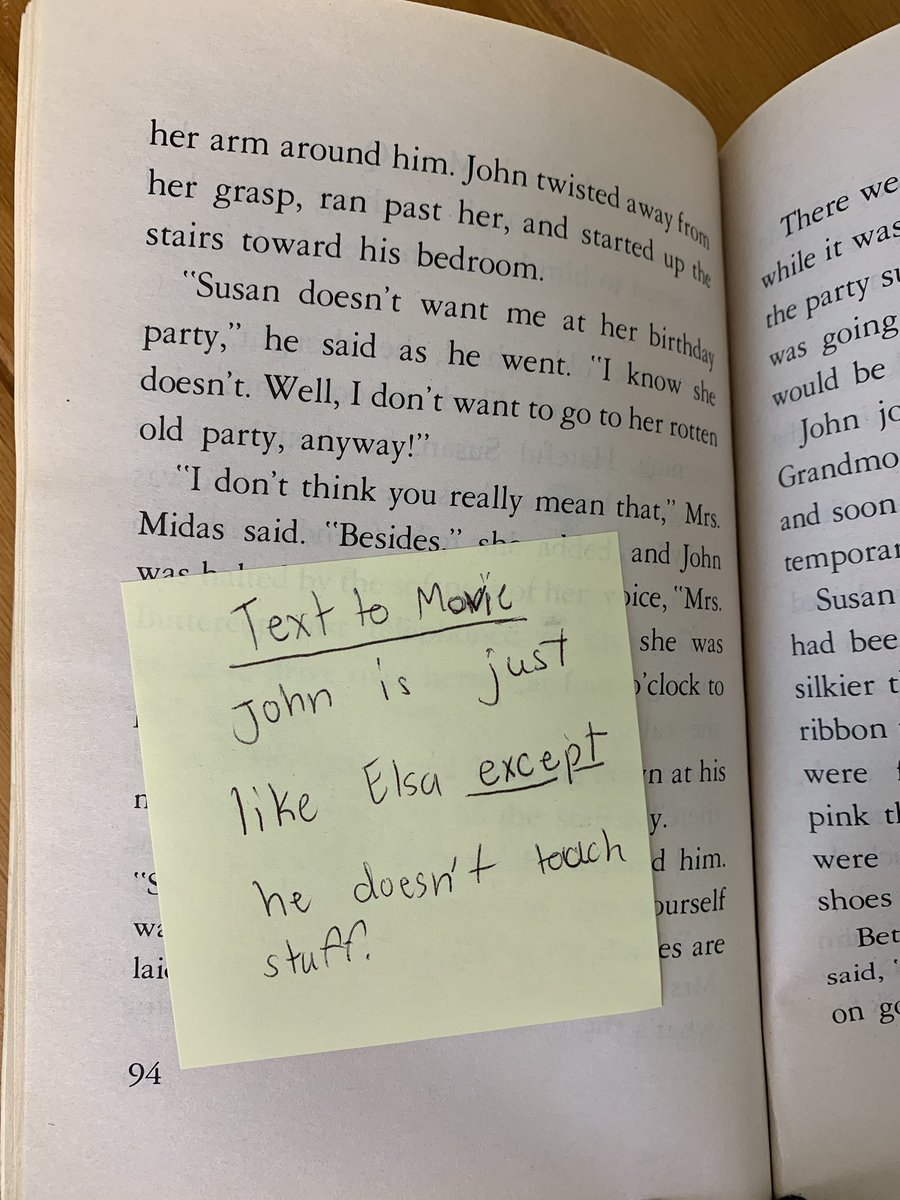 her arm around him. John twisted away from
her grasp, ran past her, and started up the
stairs toward his bedroom.
"Susan doesn't want me at her birthday
party," he said as he went. "I know she
doesn't. Well, I don't want to go to her rotten
old party, anyway!"
"I don't think you really mean that," Mrs.
Midas said. "Besides," she added, and John
was halted by the of her voice, "Mrs.
she was
o'clock to
at his
him.
yourself
are
94
Text to Movie
John is just
like Elsa except
he doesn't toach
stuff.
There
while it was
the party
was going
would be
John
and soon
Susan
had
silkier
ribbon
were
pink
were
shoes
said,
on